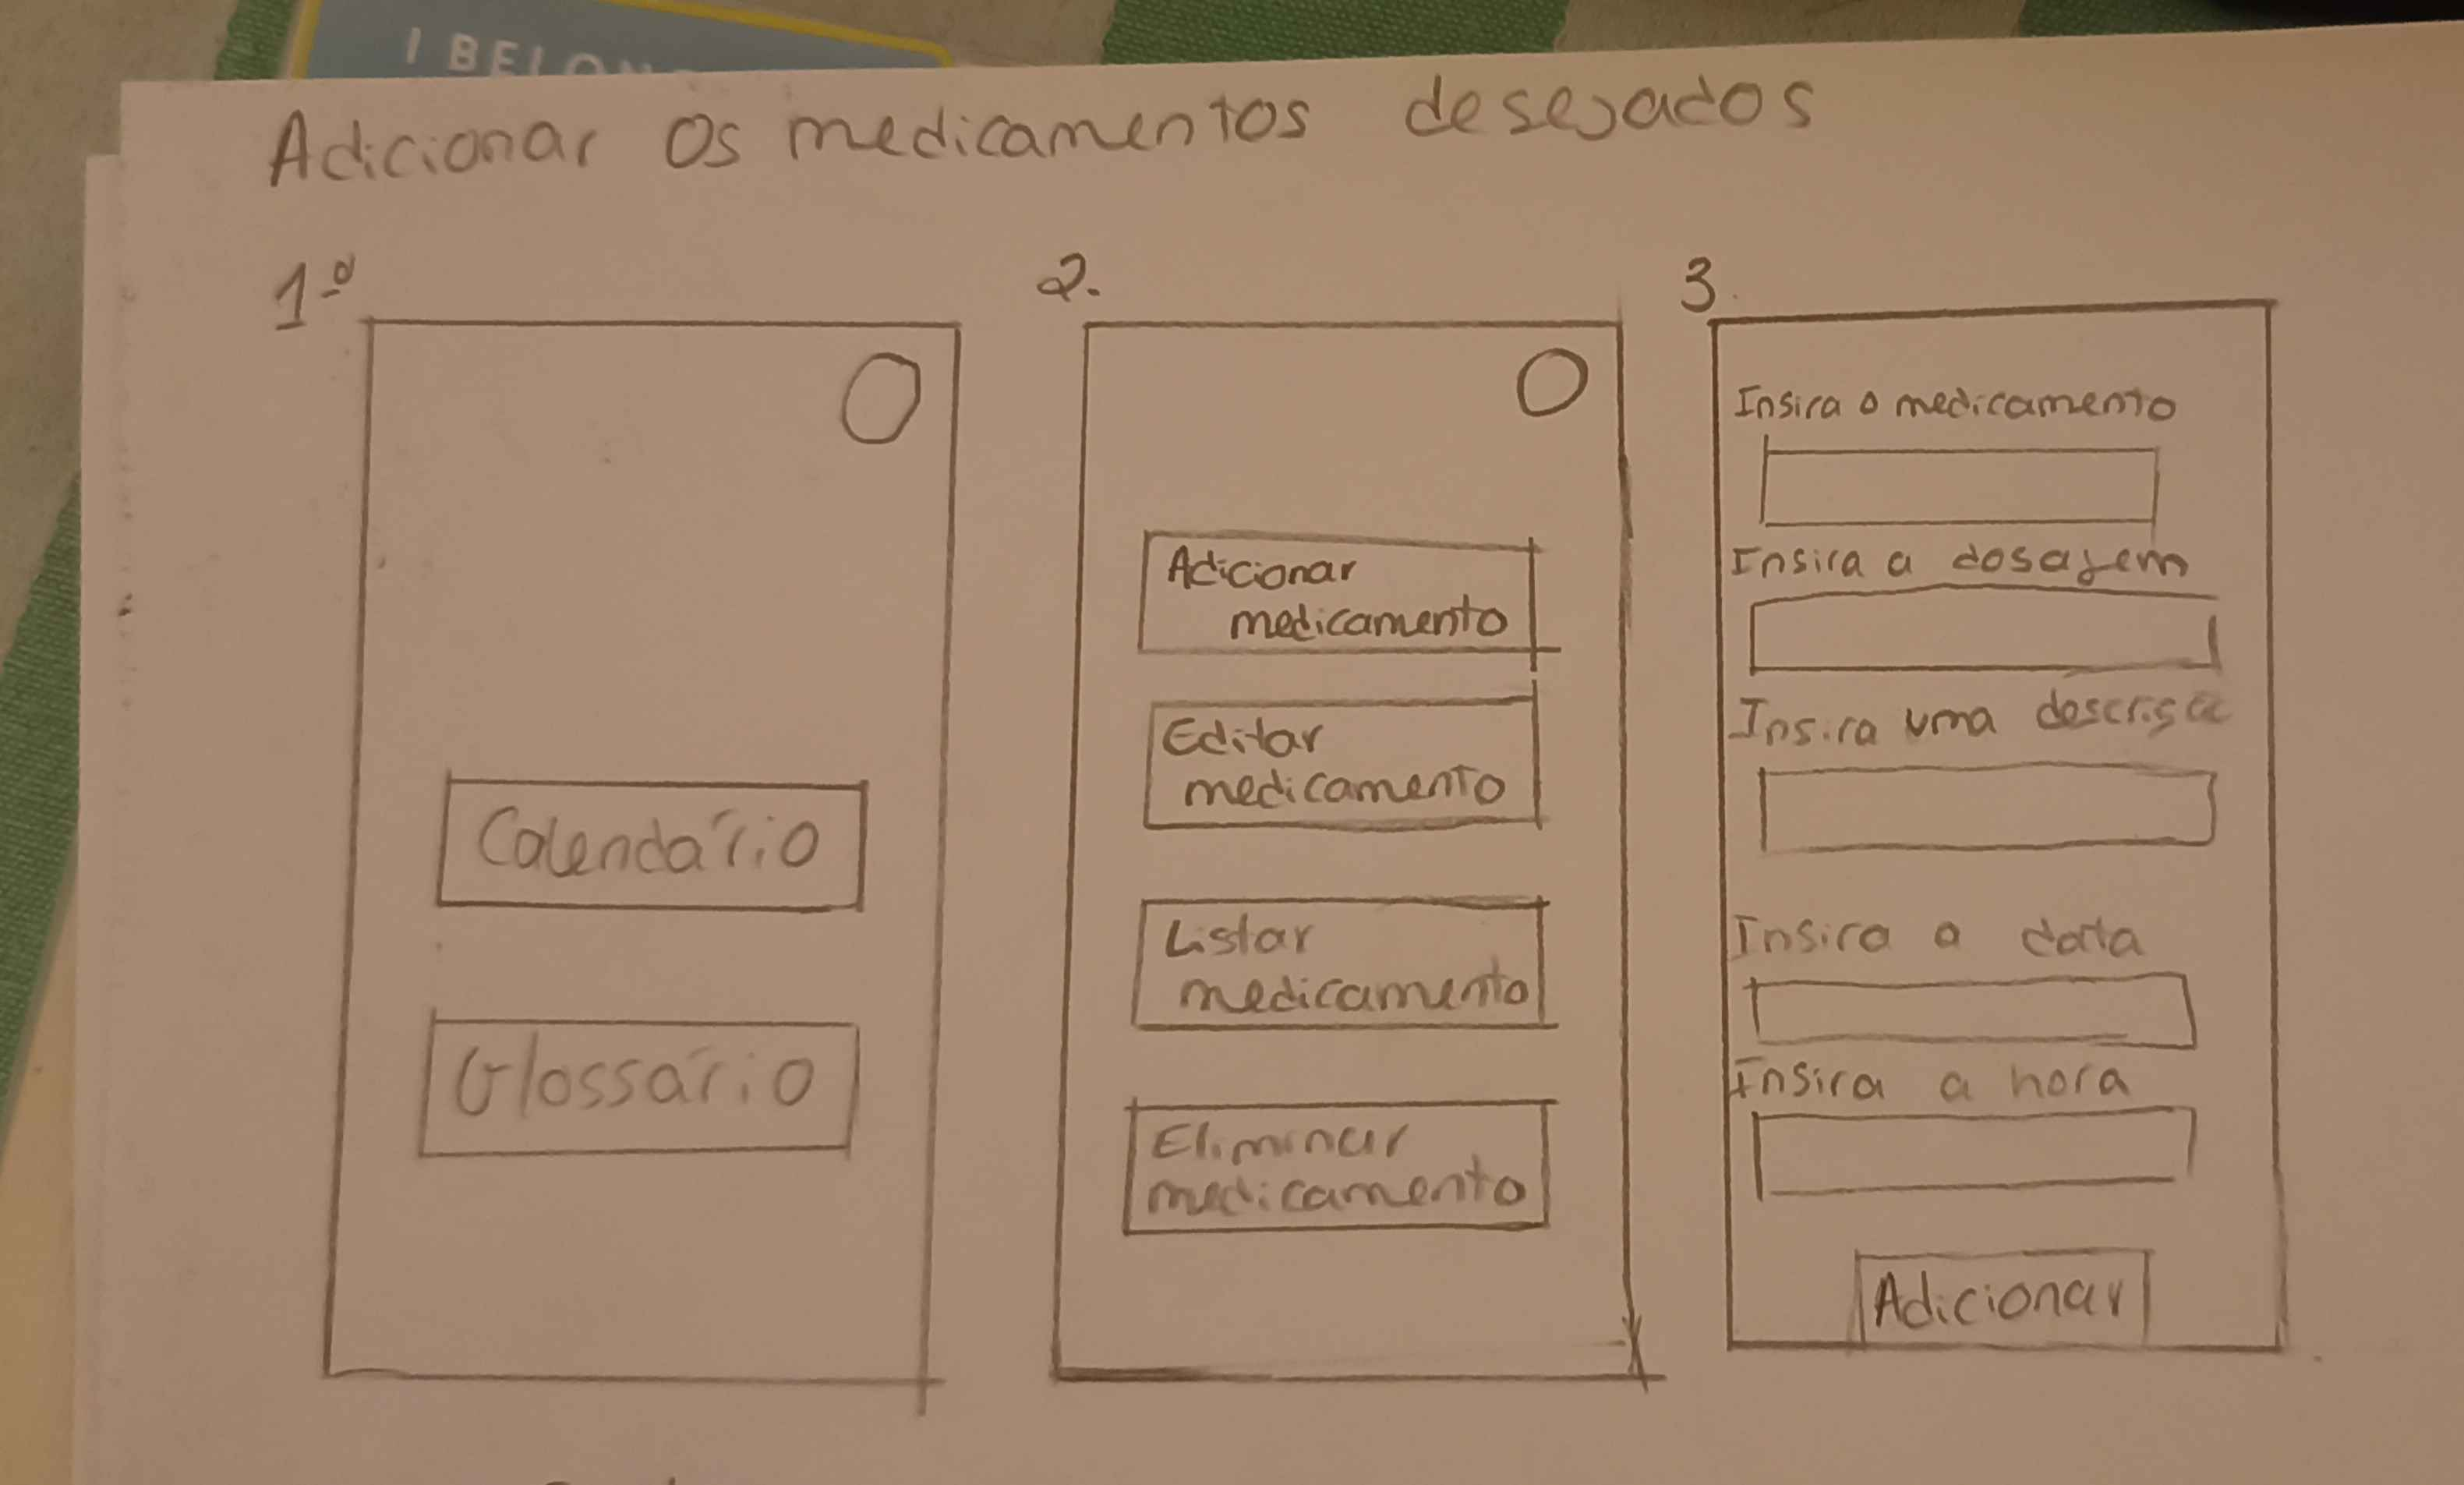 I BELON
Adicionar os medicamentos desejados
1º
2.
3.
Calendário
Glossário
Adicionar
medicamento
Editar
medicamento
Listar
medicamento
Eliminar
medicamento
Insira o medicamento
Insira a dosagem
Insira uma
Insira a data
Insira a hora
Adicionar